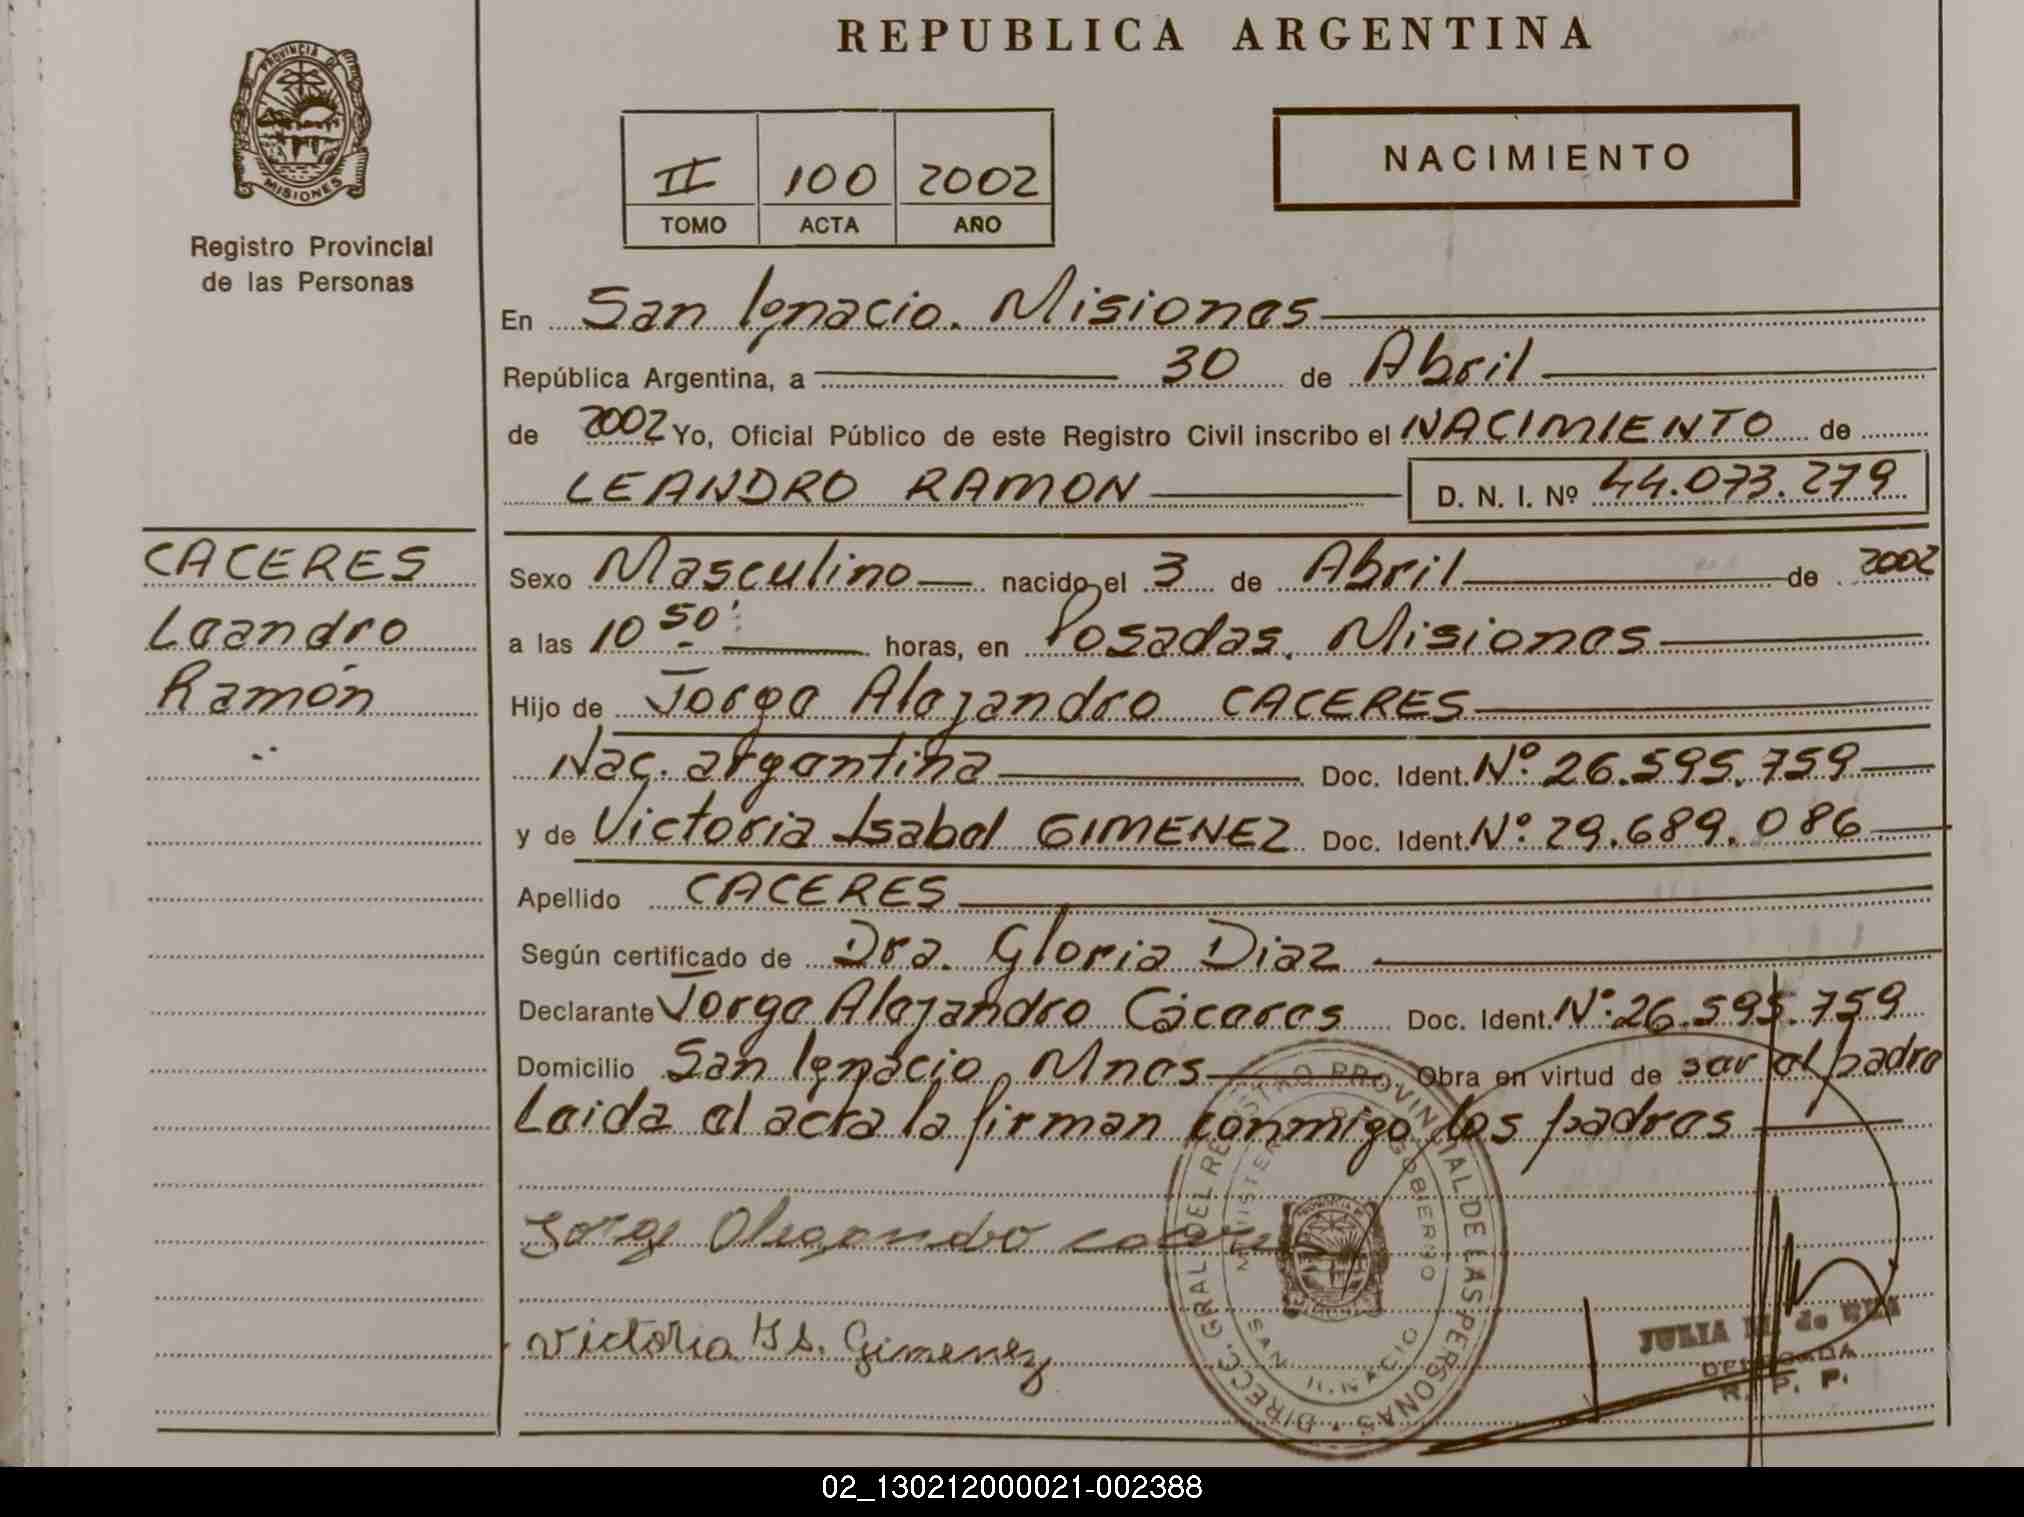 REPUBLICA ARGENTINA
PROVINCIA DE
MISIONES
Registro Provincial
de las Personas
II 100 2002
TOMO ACTA AÑO
NACIMIENTO
En San Ignacio. Misiones
República Argentina, a 30 de Abril
de 2002 Yo, Oficial Público de este Registro Civil inscribo el NACIMIENTO de
LEANDRO RAMON D. N. I. Nº 44.073.279
CACERES
Leandro
Ramón
Sexo Masculino nacido el 3 de Abril de 2002
a las 10 50' horas, en Posadas. Misiones
Hijo de Jorge Alejandro CACERES
Nac. argentina Doc. Ident. Nº. 26.595.759
y de Victoria Isabel GIMENEZ Doc. Ident. Nº. 29.689.086
Apellido CACERES
Según certificado de Dra. Gloria Diaz
Declarante Jorge Alejandro Cáceres Doc. Ident. Nº. 26.595.759
Domicilio San Ignacio, Mnes Obra en virtud de ser el padre
Leida el acta la firman conmigo los padres
DIRECC. GRAL. DEL REGISTRO PROVINCIAL DE LAS PERSONAS
MINISTERIO DE GOBIERNO
SAN IGNACIO
Victoria Is. Gimenez
JULIA
DELEGADA
R. P. P.
02_130212000021-002388